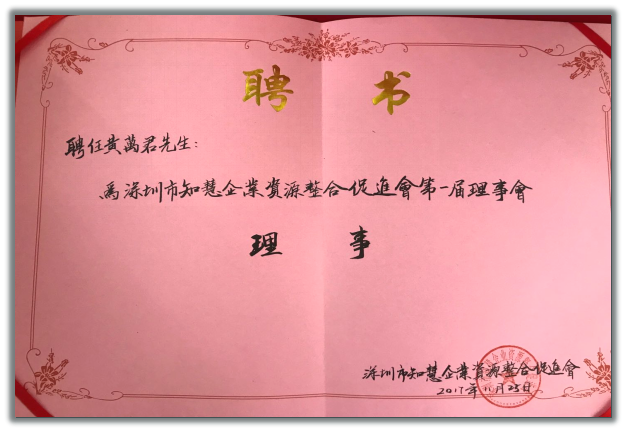 聘 书
聘任黄萬君先生：
為深圳市知慧企業資源整合促進會第一届理事會
理 事
深圳市知慧企業資源整合促進會
2017年11月25日